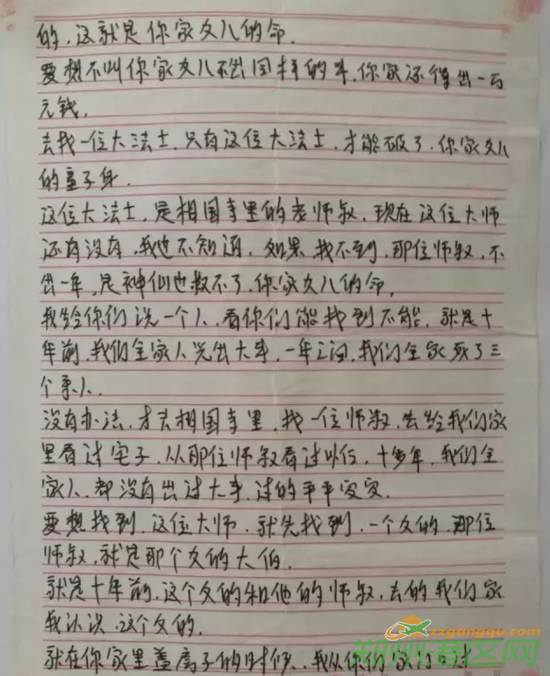 的.这就是你家女儿的命.
要想不叫你家女儿不出同样的事.你家还得出一万
元钱.
去找一位大法士.只有这位大法士.才能破了.你家女儿
的童子身.
这位大法士.是相国寺里的老师叔.现在这位大师
还有没有.我也不知道.如果.找不到.那位师叔.不
出一年.是神仙也救不了.你家女儿的命.
我给你们说一个人.看你们能找到不能.就是十
年前.我们全家人.光出大事.一年之间.我们全家死了三
个亲人.
没有办法.才去相国寺里.找一位师叔.去给我们家
里看过宅子.从那位师叔看过以后.十多年.我们全
家人.都没有出过大事.过的平平安安.
要想找到.这位大师.就先找到.一个女的.那位
师叔.就是那个女的大伯.
就是十年前.这个女的和他的师叔.去的我们家
我认识.这个女的.
就在你家里盖房子的时候.我从你们家门口过
zzgangqu.com
郑州港区网